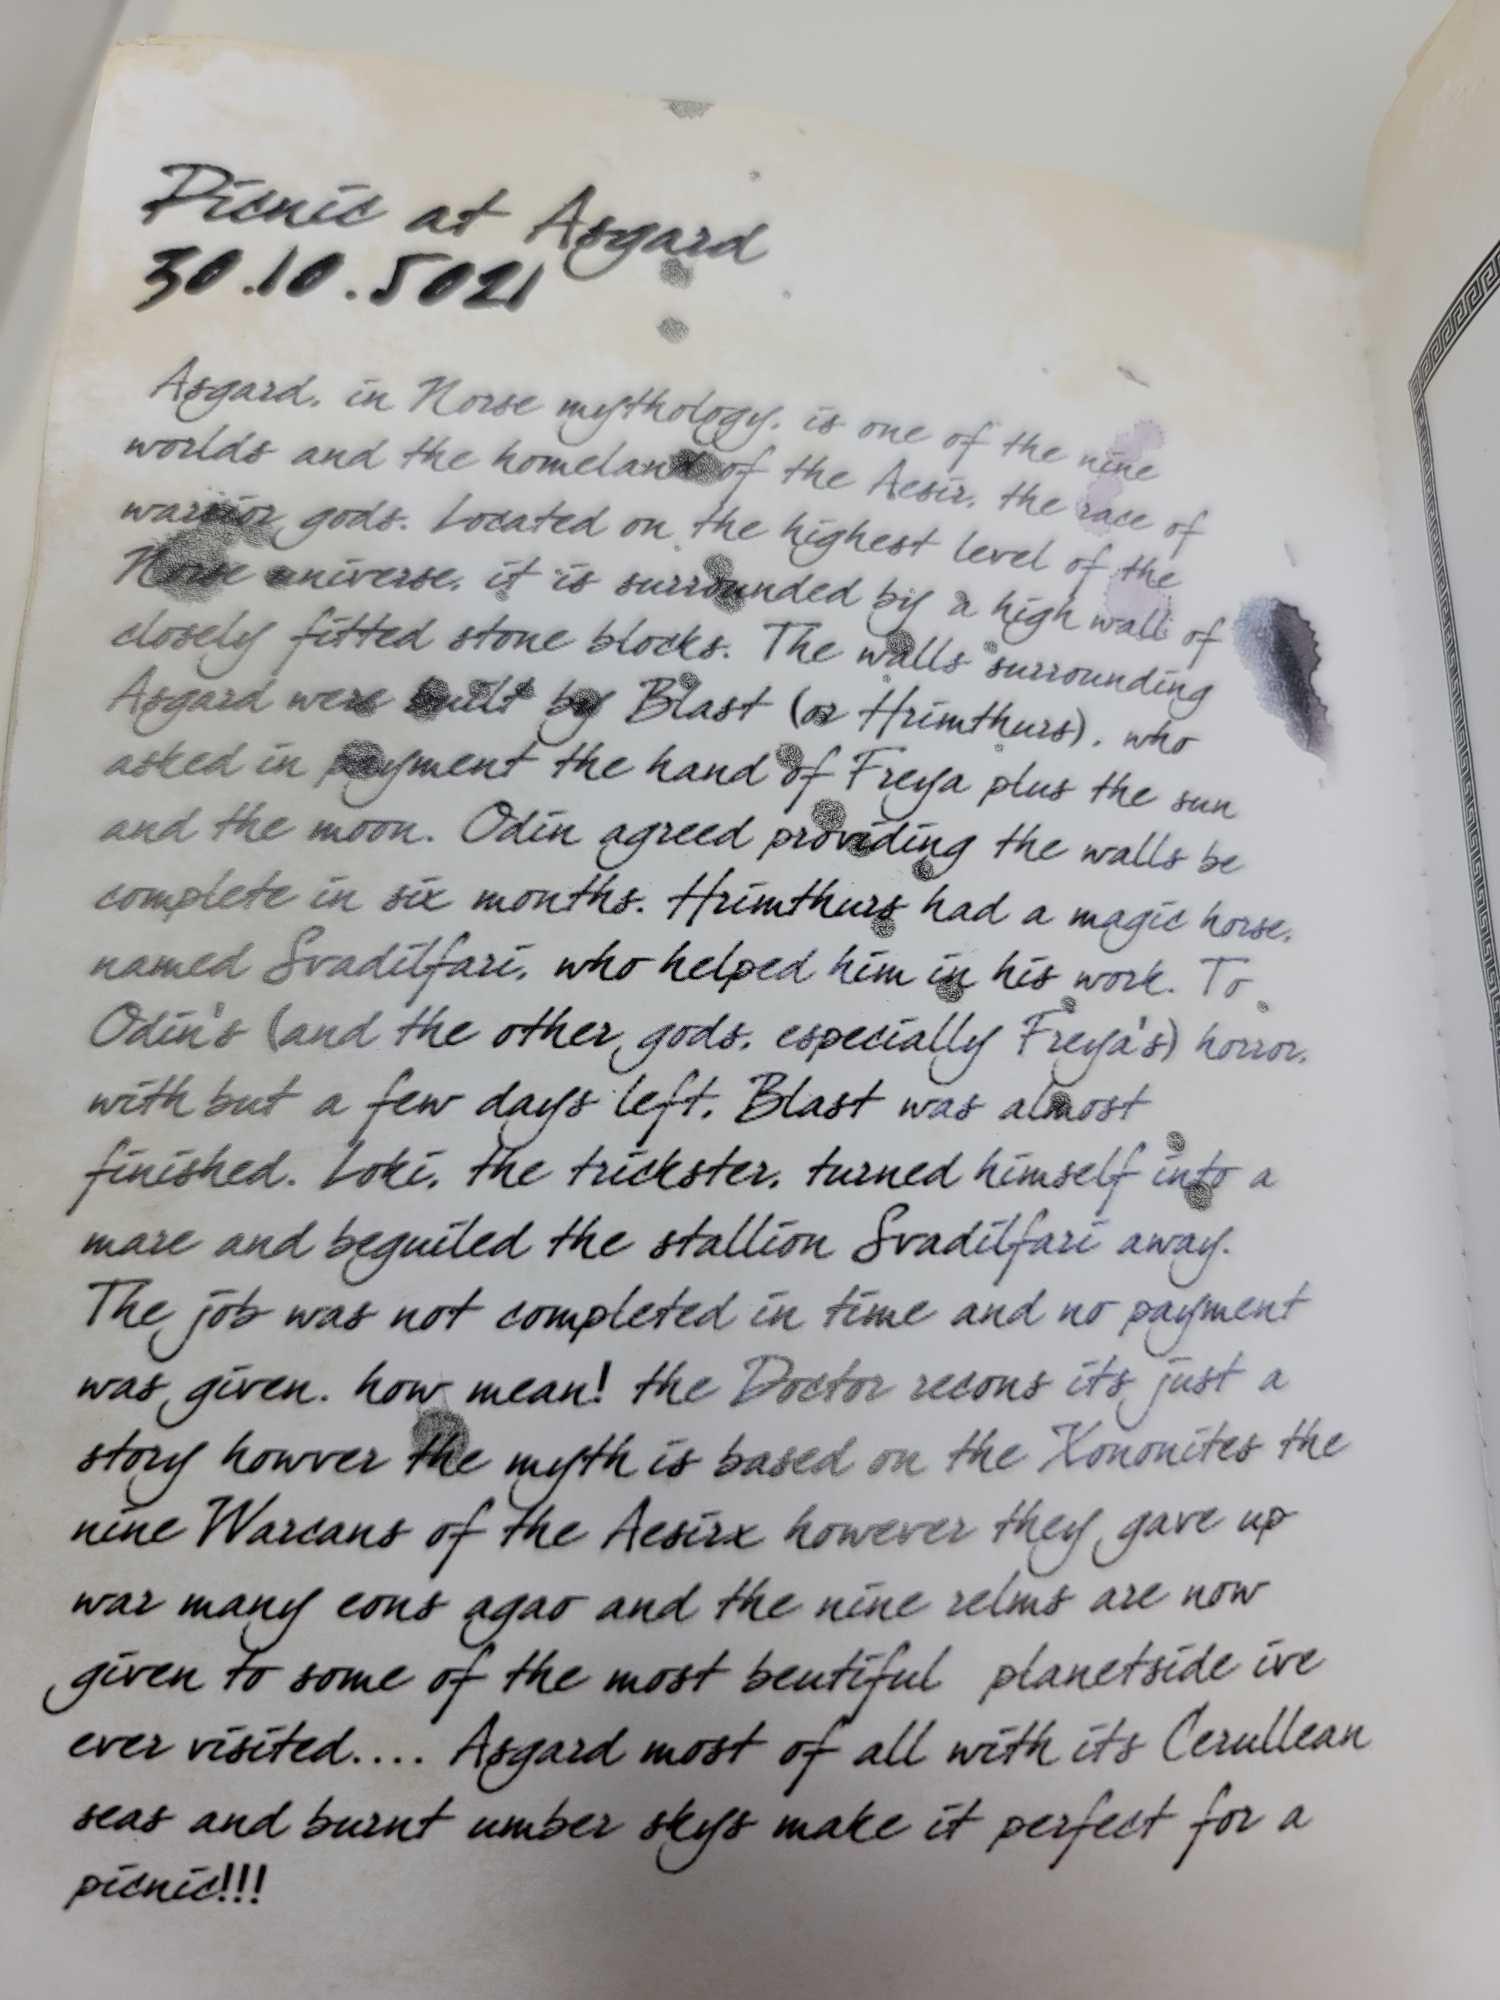 Picnic at Asgard
30.10.5021
Asgard, in Norse mythology, is one of the nine
worlds and the homeland of the Aesir, the race of
warrior gods. Located on the highest level of the
Norse universe, it is surrounded by a high wall of
closely fitted stone blocks. The walls surrounding
Asgard were built by Blast (or Hrimthurs), who
asked in payment the hand of Freya plus the sun
and the moon. Odin agreed providing the walls be
complete in six months. Hrimthurs had a magic horse,
named Svadilfari, who helped him in his work. To
Odin's (and the other gods, especially Freya's) horror,
with but a few days left, Blast was almost
finished. Loki, the trickster, turned himself into a
mare and beguiled the stallion Svadilfari away.
The job was not completed in time and no payment
was given. how mean! the Doctor recons its just a
story howver the myth is based on the Xononites the
nine Warcans of the Aesirx however they gave up
war many eons agao and the nine relms are now
given to some of the most beutiful planetside ive
ever visited.... Asgard most of all with its Cerullean
seas and burnt umber skys make it perfect for a
picnic!!!